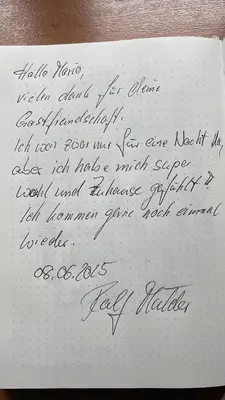 Hallo Mario,
vielen dank für Deine
Gastfreundschaft.
Ich war zwar nur für eine Nacht da,
aber ich habe mich super
wohl und zuhause gefühlt!!
Ich kommen gerne noch einmal
wieder.
08.06.2025
Ralf